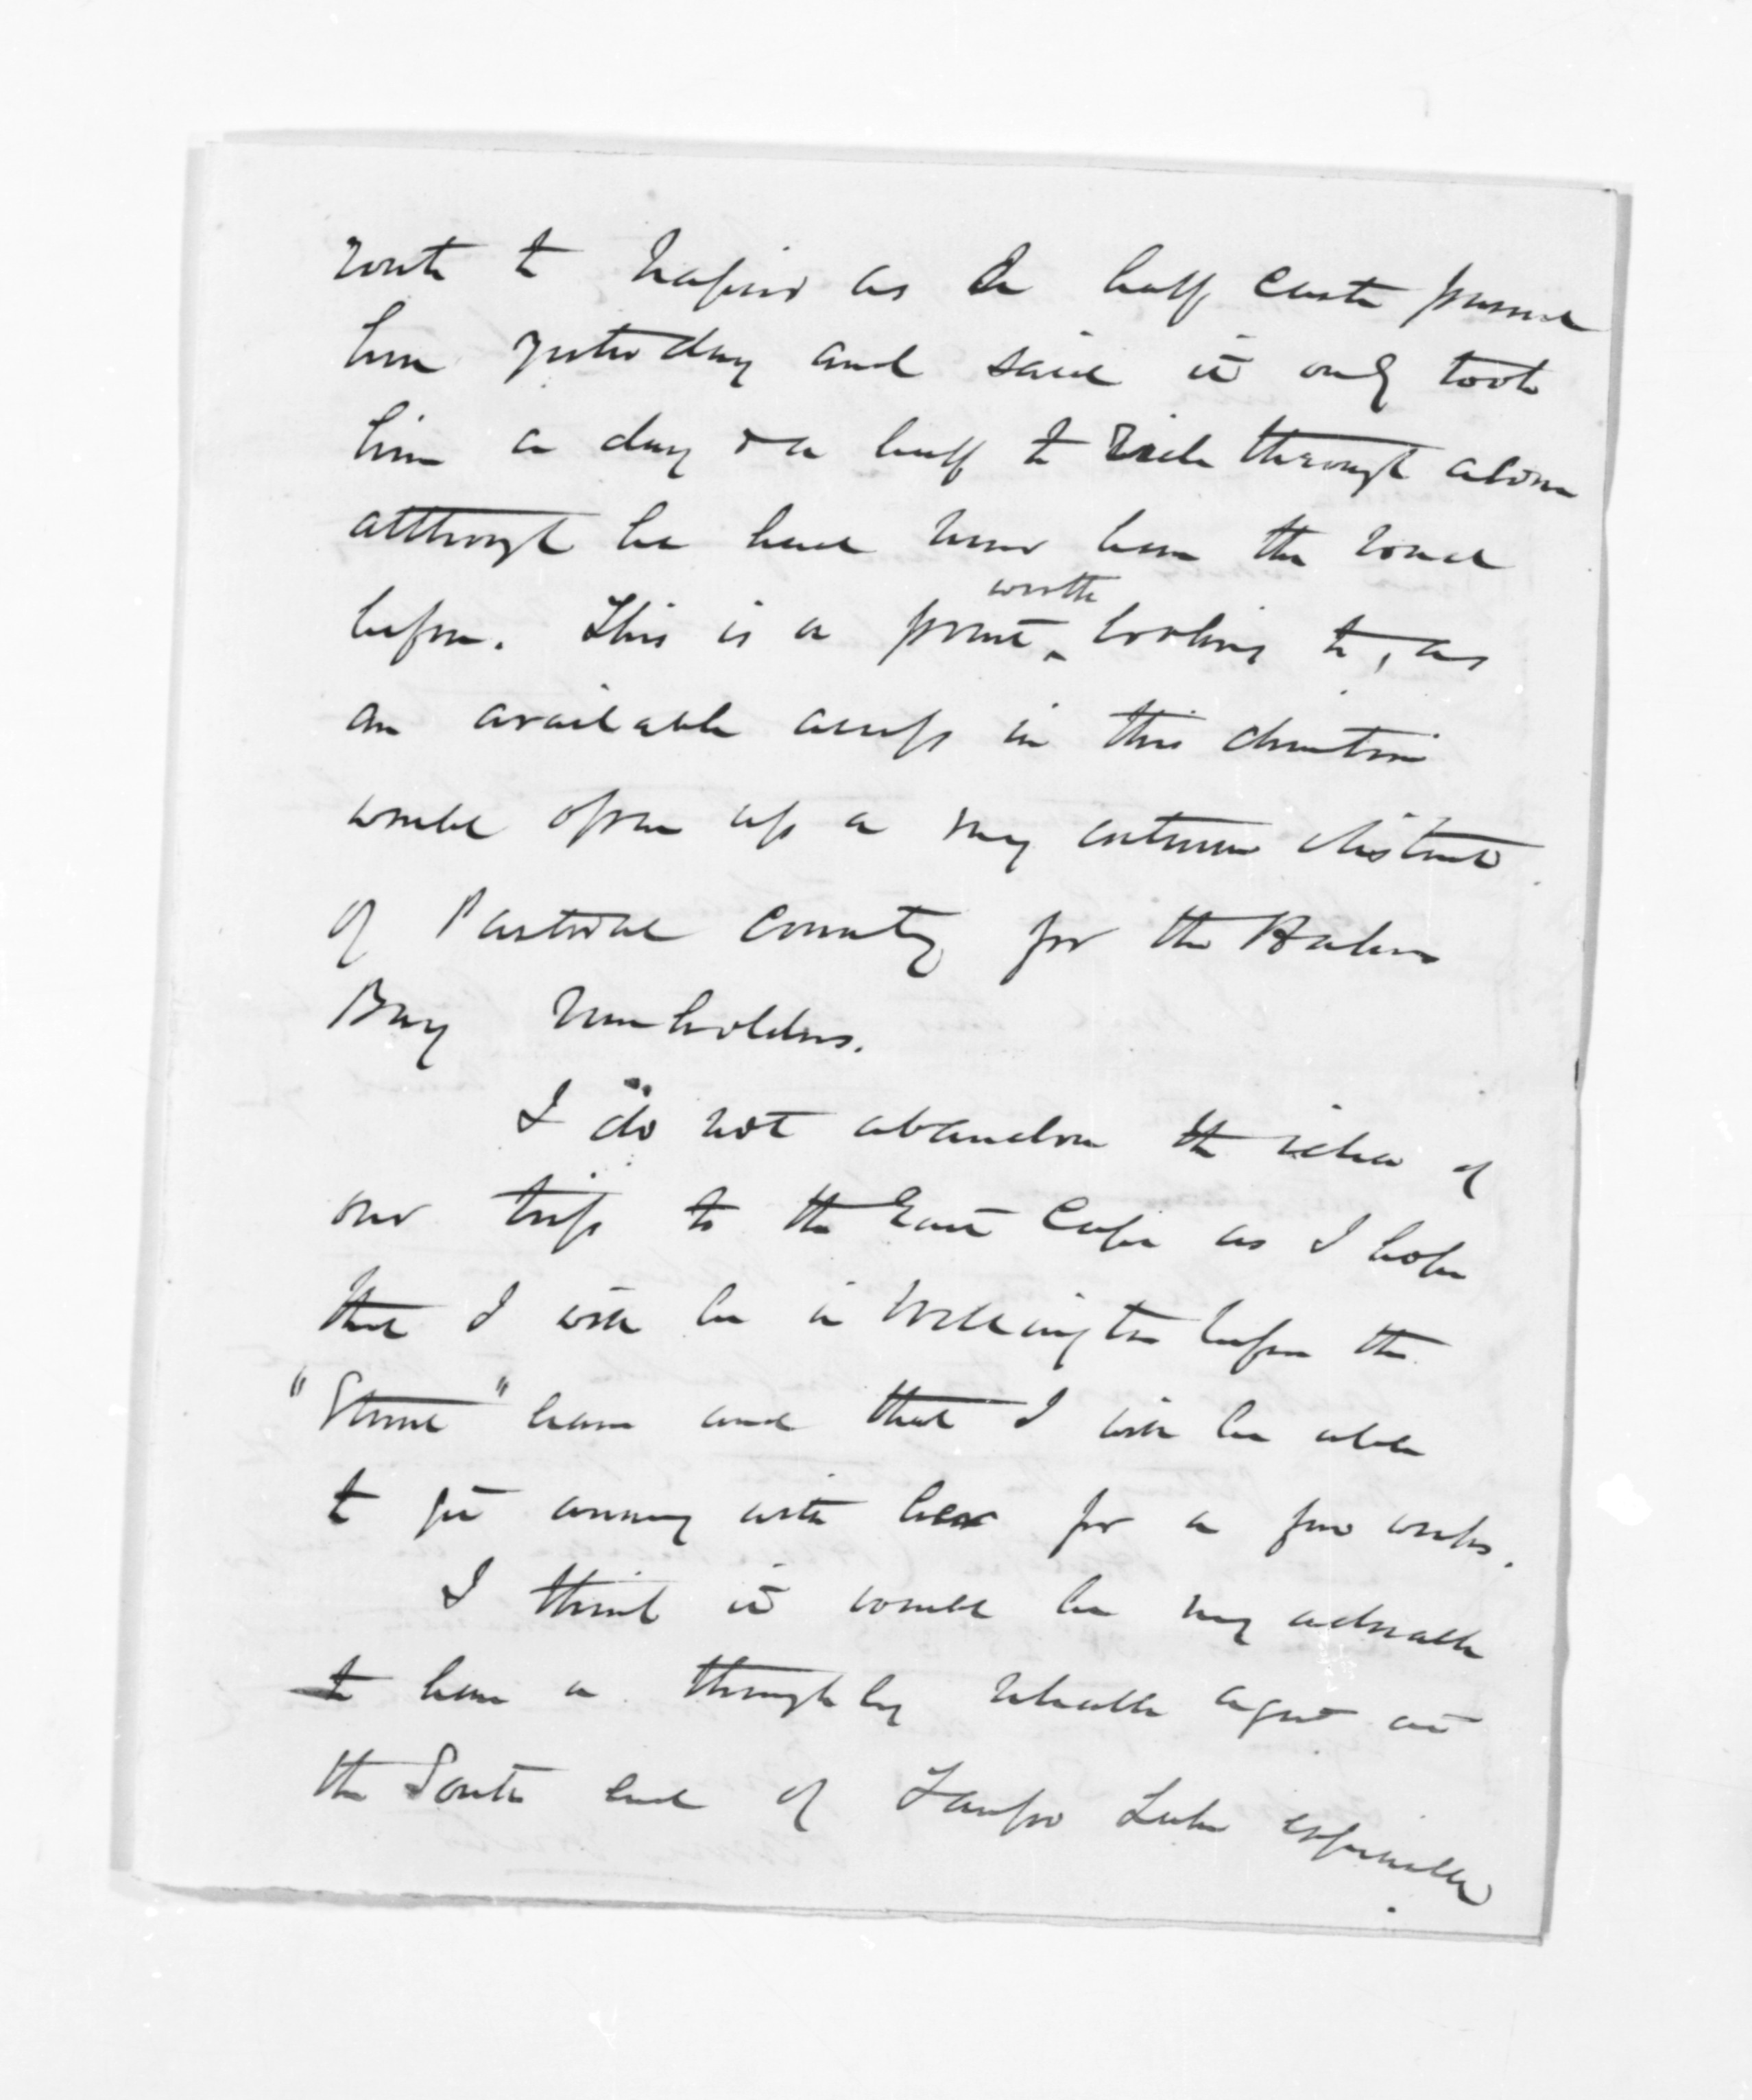 route to Napier as a half caste passed
here yesterday and said it only took
him a day & a half to ride through alone
although he had never been the road
before. This is a point worth looking to, as
an available access in this direction
would open up a very extensive district
of Pastoral Country for the Hawkes
Bay runholders.
I do not abandon the idea of
our trip to the East Cape as I hope
that I will be in Wellington before the
"Sturt" leaves and that I will be able
to get away with her for a few weeks.
I think it would be very advisable
to have a thoroughly reliable agent at
the South end of Taupo Lake especially